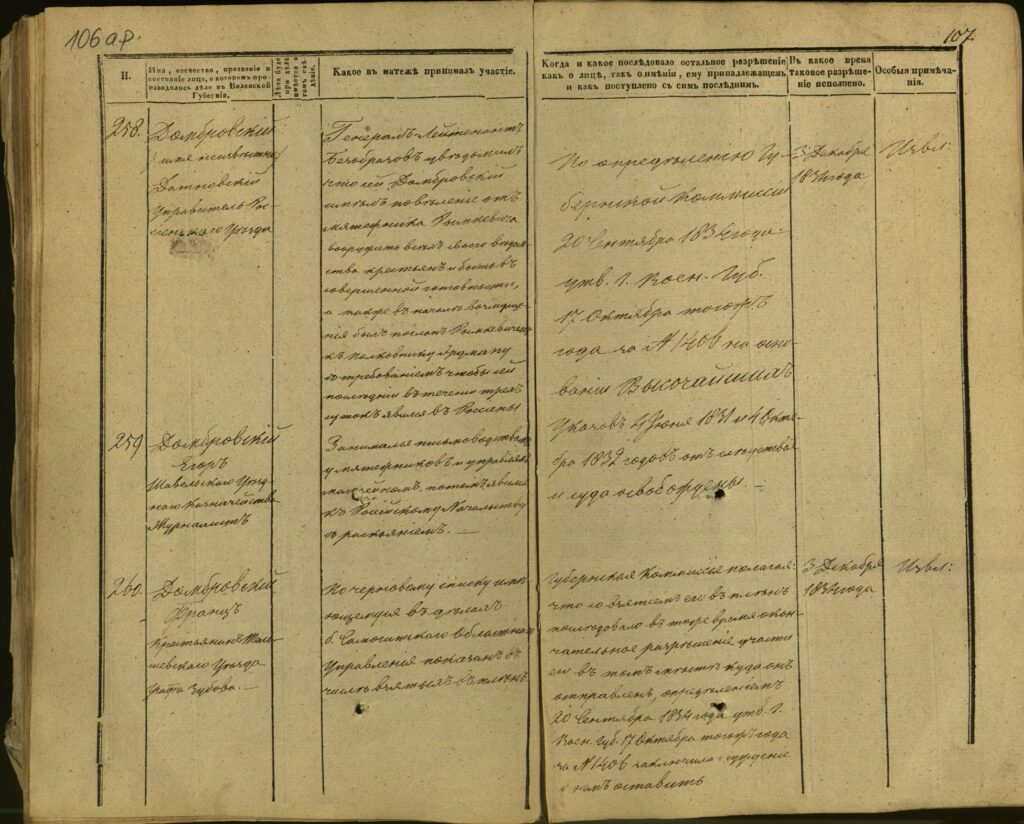 106 ар.
107
Н.
Имя, отечество, прозваніе и
состояніе лица, о которомъ про-
изводилось дѣло въ Виленской
Губерніи.
Какое въ мятежѣ принималъ участіе.
Когда и какое послѣдовало остальное разрѣшеніе
какъ о лицѣ, такъ о имѣніи, ему принадлежащемъ
и какъ поступлено съ симъ послѣднимъ.
Въ какое время
таковое разрѣше-
ніе исполнено.
Особыя примѣча-
нія.
258.
Домбровскій
имя неизвѣстно
Датновскій
Управитель Рос-
сіенскаго Уѣзда
Генералъ-Лейтенантъ
Безобразовъ увѣдомилъ
что сей Домбровскій
имѣлъ повѣленіе отъ
мятежника Рымкевича
вооружить всѣхъ своего вѣдом
ства крестьянъ и быть въ
совершенной готовности,
а также въ началѣ возмуще-
нія былъ посланъ Рымкевичемъ
къ Полковнику
съ требованіемъ чтобы сей
послѣдній въ теченіи трехъ
сутокъ явился въ Россіены
По опредѣленію Гу-
бернской Коммисіи
20 Сентября 1834 года
утв. Г. Воен. Губ.
17 Октября тогожъ
года за № 1406 на осно-
ваніи Высочайшихъ
Указовъ 4 Іюня 1831 и 4 Октя-
бря 1832 годовъ отъ слѣдствія
и суда освобождены. —
3 Декабря
1834 года
259
Домбровскій
Егоръ
Шавельскаго Уѣзд-
наго Казначейства
Журналистъ
Занимался письмоводствомъ
у мятежниковъ и управлялъ
потомъ явился
къ Россійскому Начальству
съ раскаяніемъ. —
260.
Домбровскій
Францъ
Крестьянинъ
Уѣзда
Графа Зубова. —
По черновому списку имѣ-
ющемуся въ дѣлахъ
б. Самогитскаго Областнаго
Управленія показанъ въ
числѣ взятыхъ въ плѣнъ
Губернская Коммисія полагая:
что со взятіемъ его въ плѣнъ
послѣдовало въ тоже время окон-
чательное разрѣшеніе участи
его въ томъ мѣстѣ куда онъ
отправленъ, опредѣленіемъ
20 Сентября 1834 года утв. Г.
Воен. Губ. 17 Октября тогожъ года
за № 1406 заключила: сужденіе
о немъ оставить
3 Декабря
1834 года